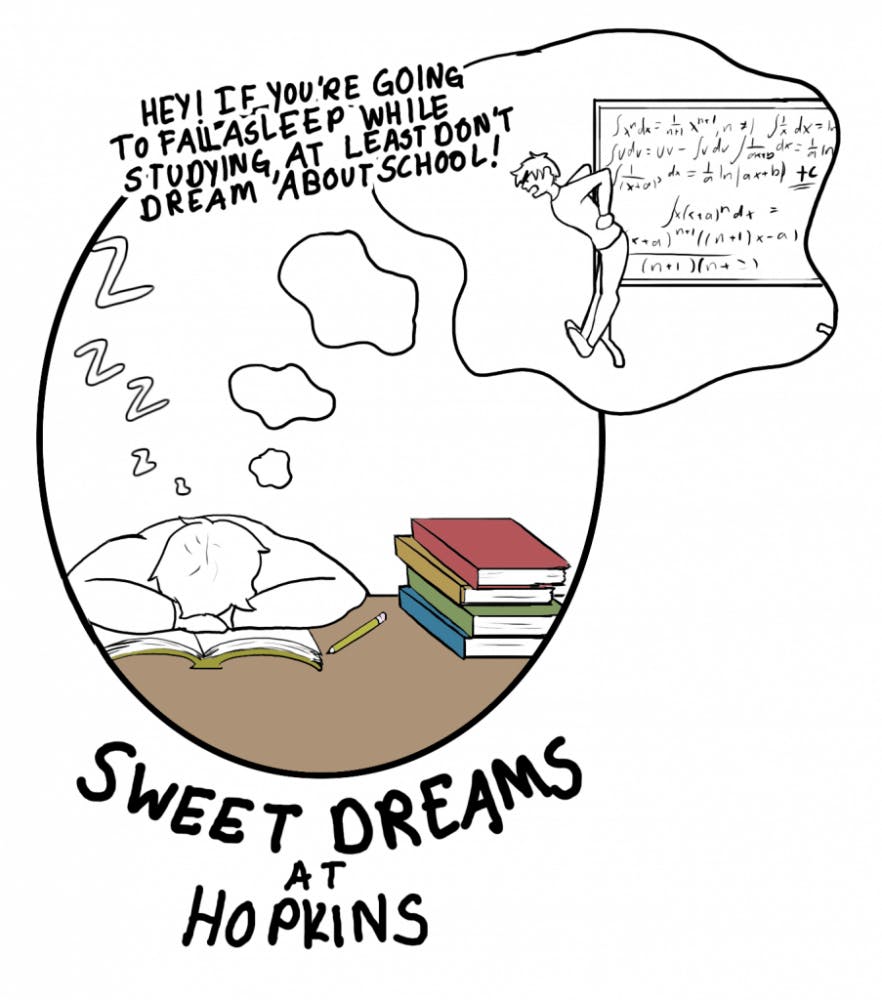 HEY! IF YOU'RE GOING
TO FALL ASLEEP WHILE
STUDYING, AT LEAST DON'T
DREAM ABOUT SCHOOL!
∫xⁿdx = 1/(n+1) xⁿ⁺¹, n ≠ 1 ∫1/x dx = ln
∫udv = uv - ∫vdu ∫1/(ax+b) dx = 1/a ln
∫1/(x+a)² dx = 1/a ln|ax+b| +c
∫x(x+a)ⁿdx =
x+a)ⁿ⁺¹((n+1)x-a)
(n+1)(n+2)
Z
Z
Z
Z
Z
SWEET DREAMS
AT
HOPKINS